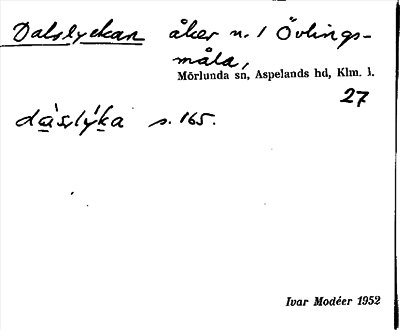 Dalslyckan åker n. 1 Övlings-
måla,
Mörlunda sn, Aspelands hd, Klm. l.
27
dàslýka s. 165.
Ivar Modéer 1952